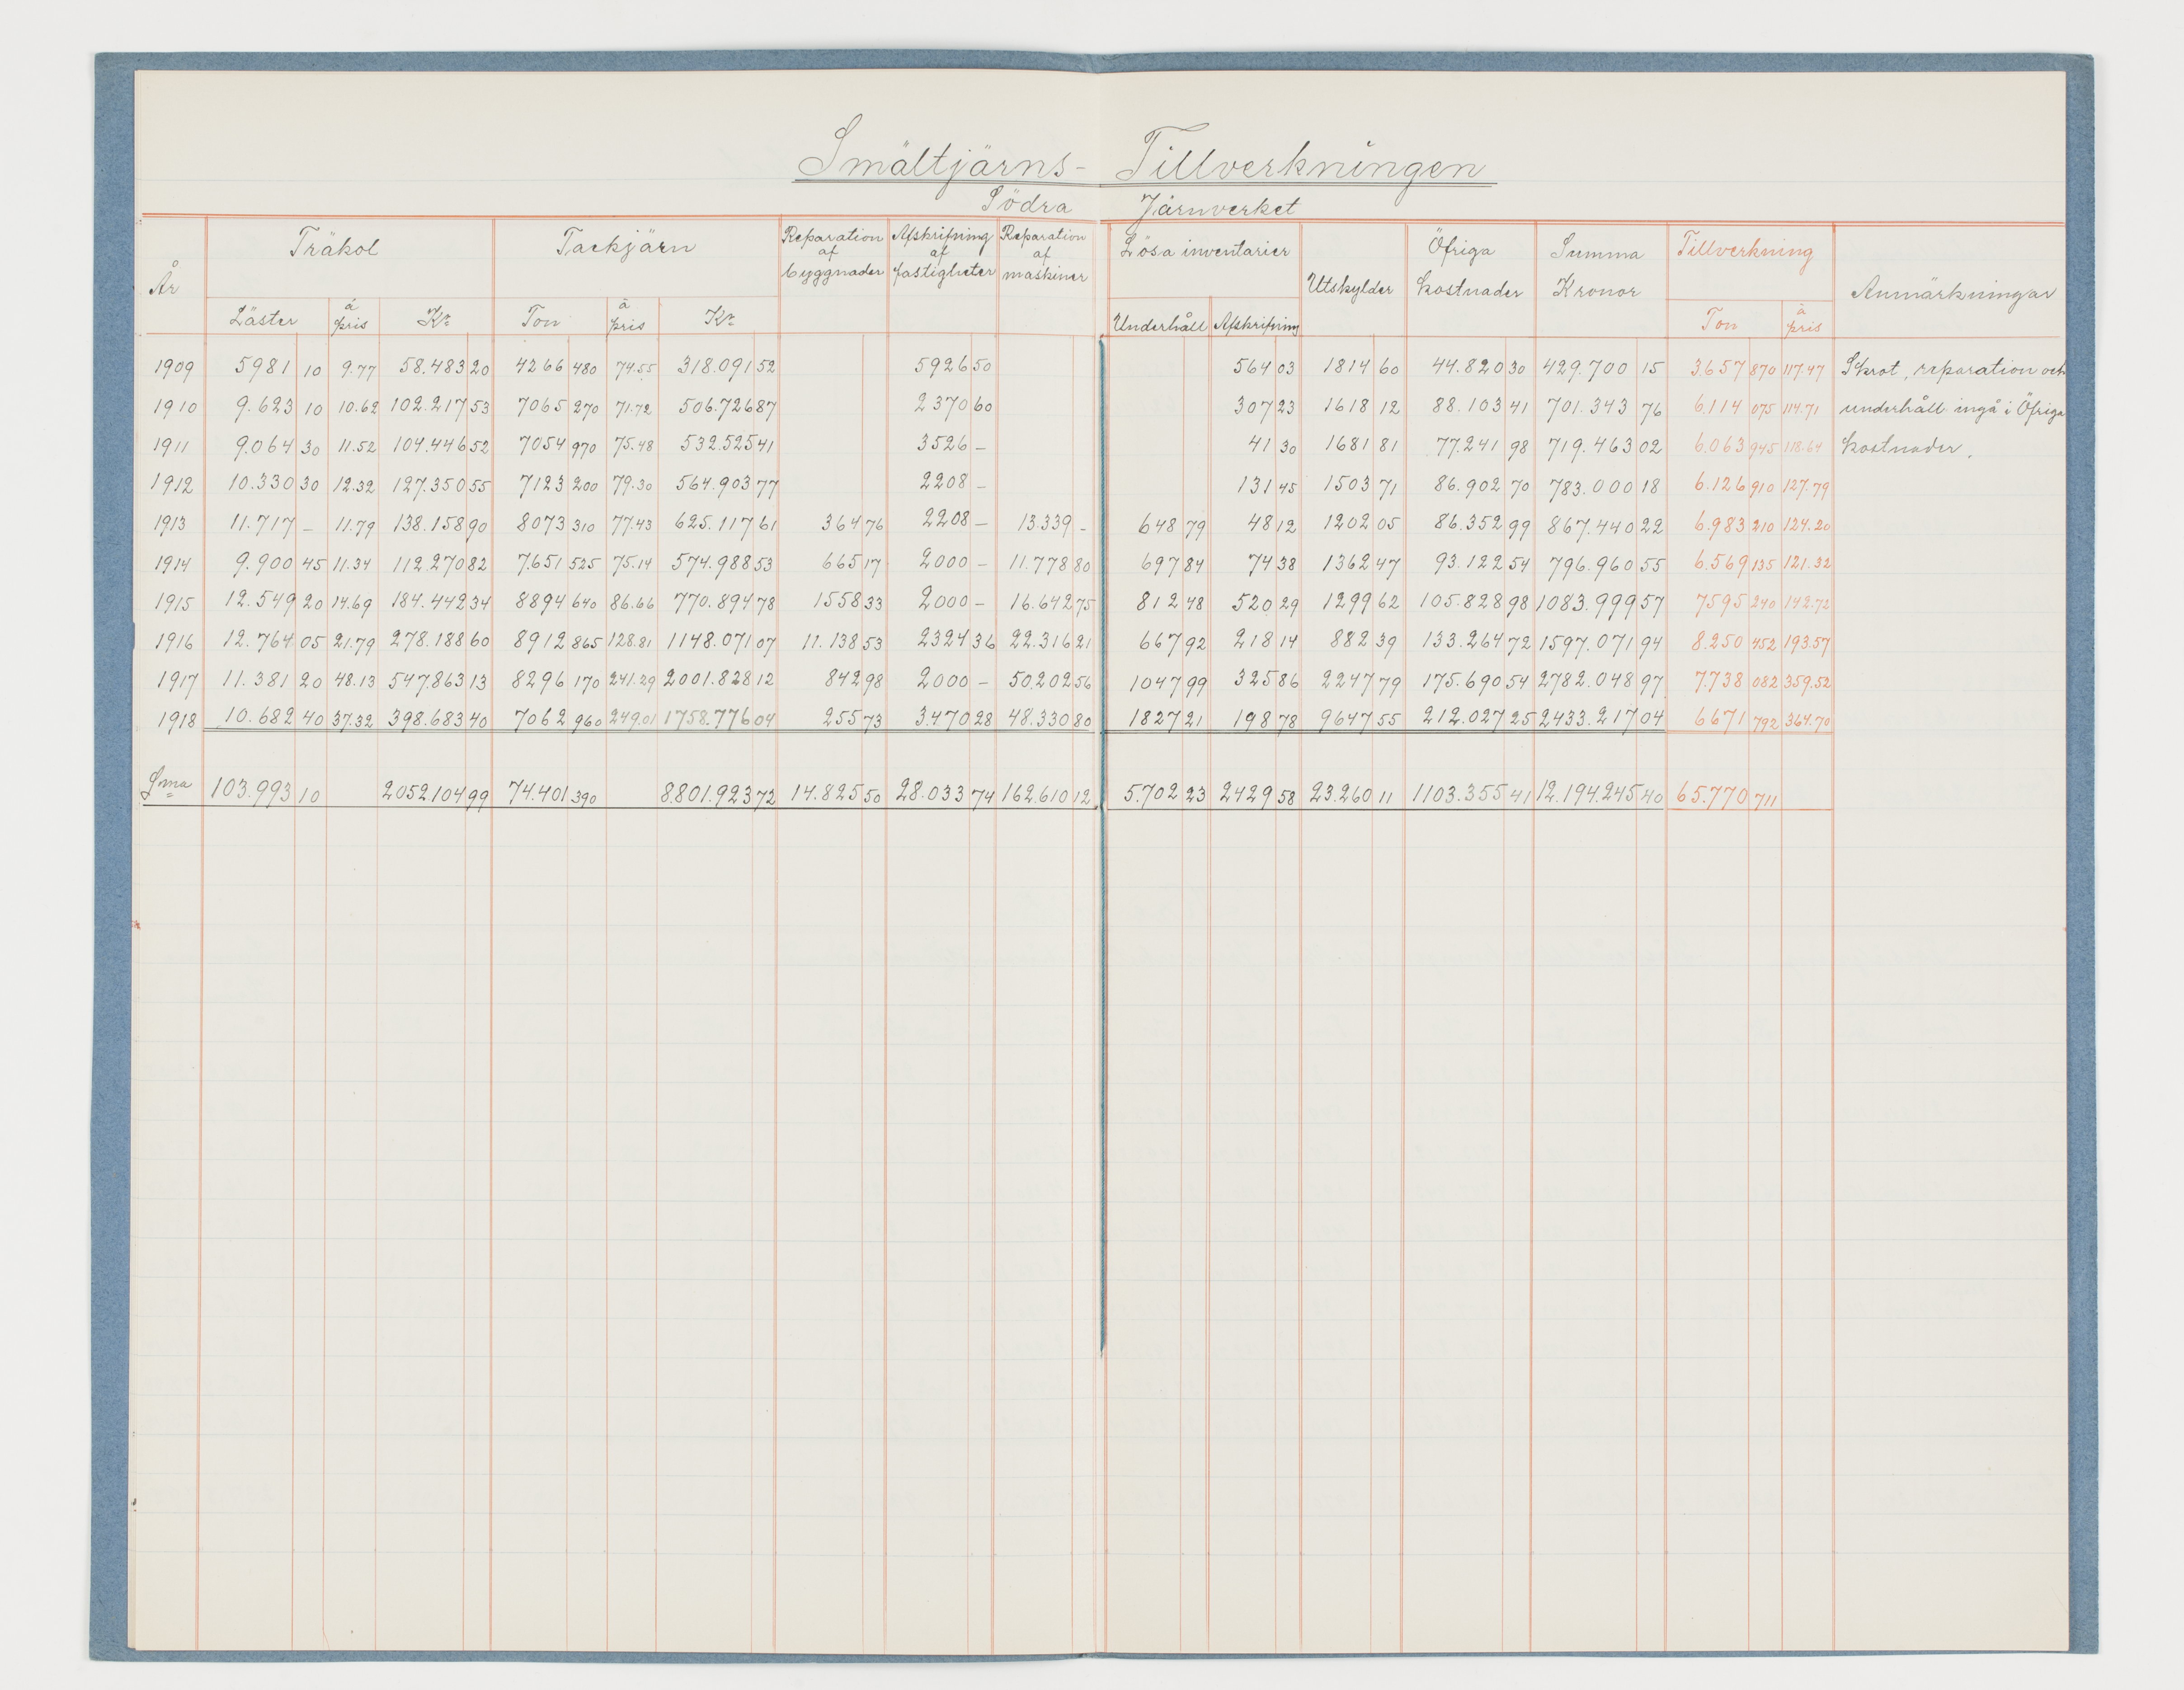 Smältjärns- Tillverkningen
Södra Järnverket
År Träkol Tackjärn Reparation af byggnader Afskrifning af fastigheter Reparation af maskiner Lösa inventarier Utskylder Öfriga kostnader Summa Kronor Tillverkning Anmärkningar
Läster à pris Kr Ton à pris Kr Underhåll Afskrifning Ton à pris
1909 5981 10 9.77 58.483 20 4266 480 74.55 318.091 52 5926 50 564 03 1814 60 44.820 30 429.700 15 3.657 870 117.47 Skrot, reparation och
1910 9.623 10 10.62 102.217 53 7065 270 71.72 506.726 87 2370 60 307 23 1618 12 88.103 41 701.343 76 6.114 075 114.71 underhåll ingå i Öfriga
1911 9.064 30 11.52 104.446 52 7054 970 75.48 532.525 41 3526 – 41 30 1681 81 77.241 98 719.463 02 6.063 945 118.64 kostnader.
1912 10.330 30 12.32 127.350 55 7123 200 79.30 564.903 77 2208 – 131 45 1503 71 86.902 70 783.000 18 6.126 910 127.79
1913 11.717 – 11.79 138.158 90 8073 310 77.43 625.117 61 364 76 2208 – 13.339 – 648 79 48 12 1202 05 86.352 99 867.440 22 6.983 210 124.20
1914 9.900 45 11.34 112.270 82 7.651 525 75.14 574.988 53 665 17 2000 – 11.778 80 697 84 74 38 1362 47 93.122 54 796.960 55 6.569 135 121.32
1915 12.549 20 14.69 184.442 34 8894 640 86.66 770.894 78 1558 33 2000 – 16.642 75 812 48 520 29 1299 62 105.828 98 1083.999 57 7595 240 142.72
1916 12.764 05 21.79 278.188 60 8912 865 128.81 1148.071 07 11.138 53 2324 36 22.316 21 667 92 218 14 882 39 133.264 72 1597.071 94 8.250 452 193.57
1917 11.381 20 48.13 547.863 13 8296 170 241.29 2001.828 12 842 98 2000 – 50.202 56 1047 99 325 86 2247 79 175.690 54 2782.048 97 7.738 082 359.52
1918 10.682 40 37.32 398.683 40 7062 960 249.01 1758.776 04 255 73 3.470 28 48.330 80 1827 21 198 78 9647 55 212.027 25 2433.217 04 6671 792 364.70
Sma 103.993 10 2052104 99 74.401 390 8.801.923 72 14.825 50 28.033 74 162.610 12 5.702 23 2429 58 23.260 11 1103.355 41 12.194.245 40 65.770 711